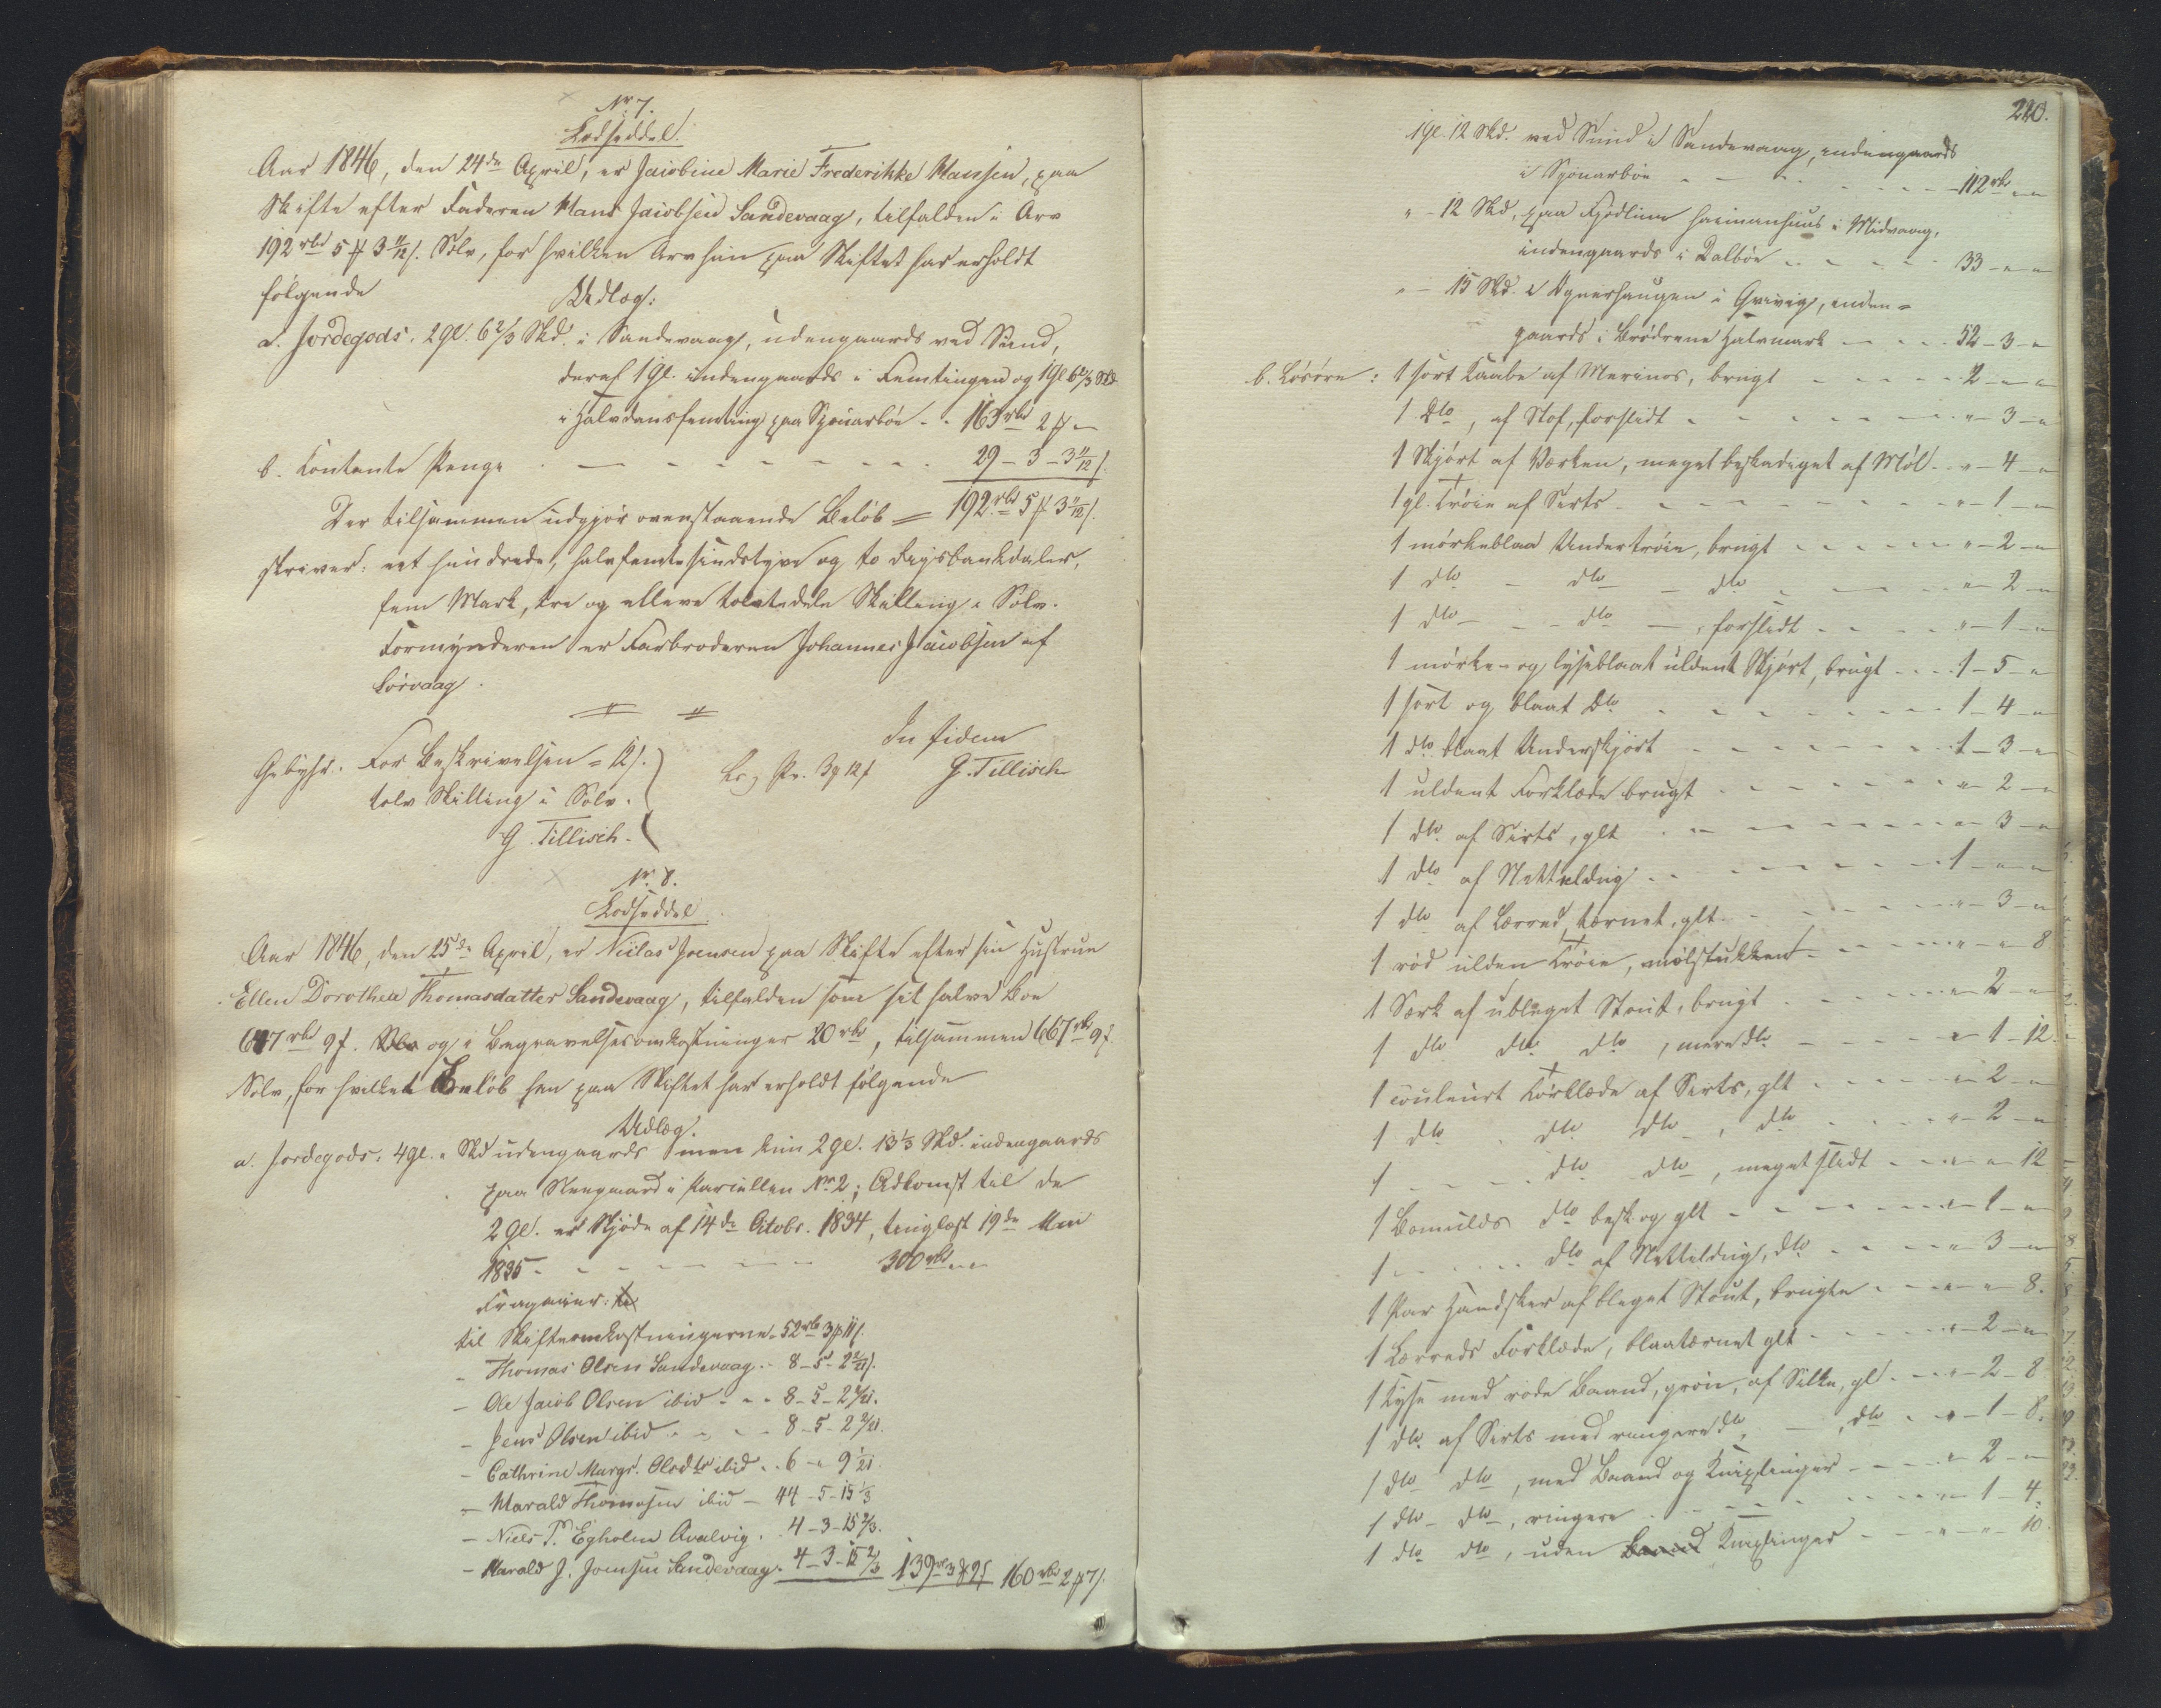 Nr. 7.
Lodseddel.
Aar 1846, den 24de April, er Jacobine Marie Frederikke Hansen, paa
Skifte efter Faderen Hans Jacobsen Sandevaag, tilfalden i Arv
192 rbd 5 ß 3 11/12 s. Sølv, for hvilken Arv hun paa Skiftet har erholdt
følgende
Udlæg:
a. Jordegods: 2 Gl. 6 2/3 Skd. i Sandevaag, udengaards ved Sund,
deraf 1 Gl. indengaards i Femtingen og 1 Gl 6 2/3 Skd
i Halvdansfemting paa Sjonarbøe - - 163 rbd 2 ß "
b. Contante Penge - - - - - 29 - 3 - 3 11/12 s.
Der tilsammen udgjør ovenstaaende Beløb = 192 rbd 5 ß 3 11/12 s.
skriver: eet hundrede, halvfemtesindstyve og to Rigsbankdaler,
fem Mark, tre og elleve tolvtedele Skilling i Sølv.
Formynderen er Farbroderen Johannes Jacobsen af
Sørvaag.
In fidem
Gebyhr. For Beskrivelsen = 12 s.
G. Tillisch
tolv Skilling i Sølv.
G. Tillisch.
Nr. 8.
Lodseddel.
Aar 1846, den 25de April, er Niclas Joensen paa Skifte efter sin Hustrue
Ellen Dorothea Thomasdatter Sandevaag, tilfalden som sit halve Boe
647 rbd 9 s. og i Begravelsesomkostninger 20 rbd, tilsammen 667 rbd 9 s.
Sølv, for hvilket Beløb han paa Skiftet har erholdt følgende
Udlæg.
a. Jordegods: 4 Gl. " Skd udengaards men kun 2 Gl. 13 1/3 Skd. indengaards
paa Steegaard i Parcellen No 2; Adkomst til de
2 Gl. er Skjøde af 14de Octobr. 1834, tinglæst 19de Mai
1835 - - - - - 300 rbd " "
Fragaaer:
til Skifteomkostningerne - 52 rbd 3 ß 11 s.
- Thomas Olsen Sandevaag - 8 - 5 - 2 2/21 s.
- Ole Jacob Olsen ibid - - 8 - 5 - 2 2/21.
- Jens Olsen ibid - - - 8 - 5 - 2 2/21.
- Cathrine Margr. Olsdtr ibid - - 6 - " 9 1/21
- Harald Thomasen ibid - 44 - 5 - 15 1/3
- Niels P. Egholm Qvalvig - 4 - 3 - 15 2/3.
- Harald J. Joensen Sandevaag - 4 - 3 - 15 2/3 139 rbd 3 ß 9 s 160 rbd 2 ß 7 s.
210.
1 Gl. 12 Skd. ved Sund i Sandevaag, indengaards
i Sjonarbøe - - - - 112 rbd " "
" - 12 Skd, paa Fjodlum heimanhuus i Midvaag,
indengaards i Dalbøe - - - - 33 - " "
" - 15 Skd. i Ognerhaugen i Grivig, inden-
gaards i Brødrene Halvmark - - - - 52 - 3 - "
b. Løsøre: 1 sort Kaabe af Merinos, brugt - - - - 2 - " "
1 Dto, af Stof, forslidt - - - - " - 3 - "
1 Skjørt af Værken, meget beskadiget af Møl - " - 4 - "
1 gl. Trøie af Sirts - - - - " - 1 - "
1 mørkeblaa Undertrøie, brugt - - - - " - 2 - "
1 dto - dto - dto - - - " - 2 - "
1 dto - - dto - , forslidt - - - " - 1 - "
1 mørke- og lyseblaat uldent Skjørt, brugt - - - 1 - 5 - "
1 sort og blaat Dto - - - - 1 - 4 - "
1 dto blaat Underskjørt - - - - 1 - 3 - "
1 uldent Forklæde brugt - - - - " - 2 - "
1 dto af Sirts, glt - - - - " - 3 - "
1 dto af Netteldug - - - - 1 - " - "
1 dto af Lærred, tærnet, glt. - - - - " - 3 - "
1 rød ulden Trøie, mølstukken - - - - " - " - 8
1 Særk af ubleget Stout, brugt - - - - " - 2 - "
1 dto dto dto, mere dto - - - - " - 1 - 12.
1 couleurt Tørklæde af Sirts, glt - - - - " - 2 - "
1 dto - dto dto, dto - - - - " - 2 - "
1 - - - dto dto, meget slidt - - - " - " 12
1 Bomulds dto besk. og glt - - - - " - 1 - "
1 - - - dto af Netteldug, dto - - - " - 3 - "
1 Par Handsker af bleget Stout, brugte - - - " - " 8.
1 Lærreds Forklæde, blaatærnet glt - - - - " - 2 - "
1 Kyse med røde Baand, grøn, af Silke, gl - - - " - 2 - 8
1 dto af Sirts med ringere dto, - , dto - - " - 1 - 8.
1 dto dto, med Baand og Kniplinger - - - - " 2 - "
1 dto - dto, ringere - - - - " - 1 - 4.
1 dto dto, uden Baand Kniplinger - - - " - " 10.